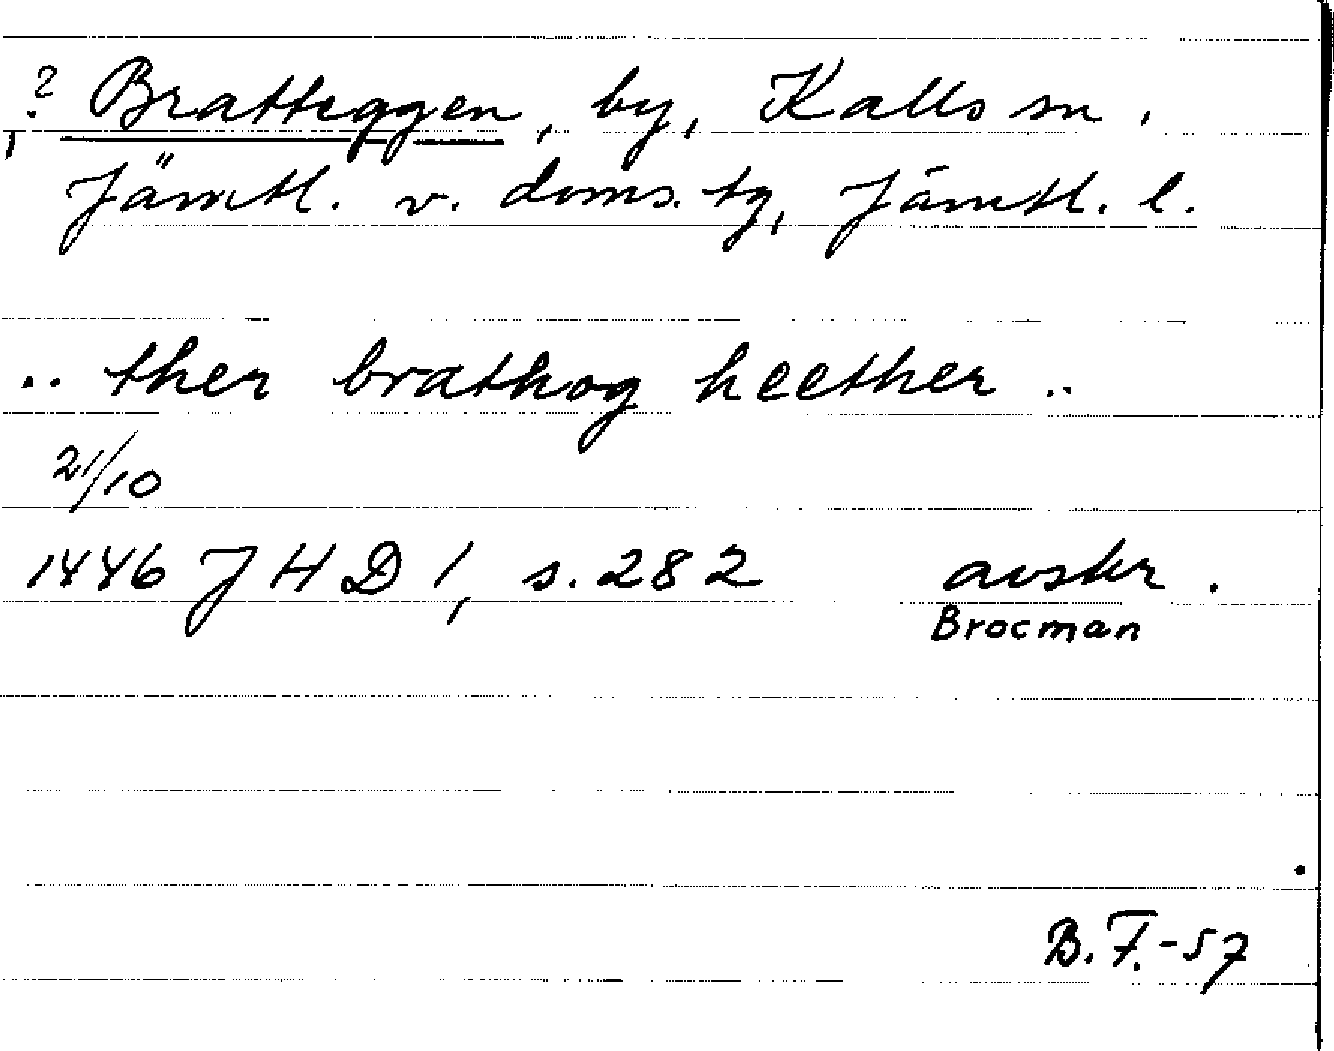 ? Bratteggen, by, Kalls sn.
Jämtl. v. doms. tg, Jämtl. l.
.. ther brathog heether ..
21/10
1446 JHD 1, s. 282 avskr.
Brocman
B.F.-57